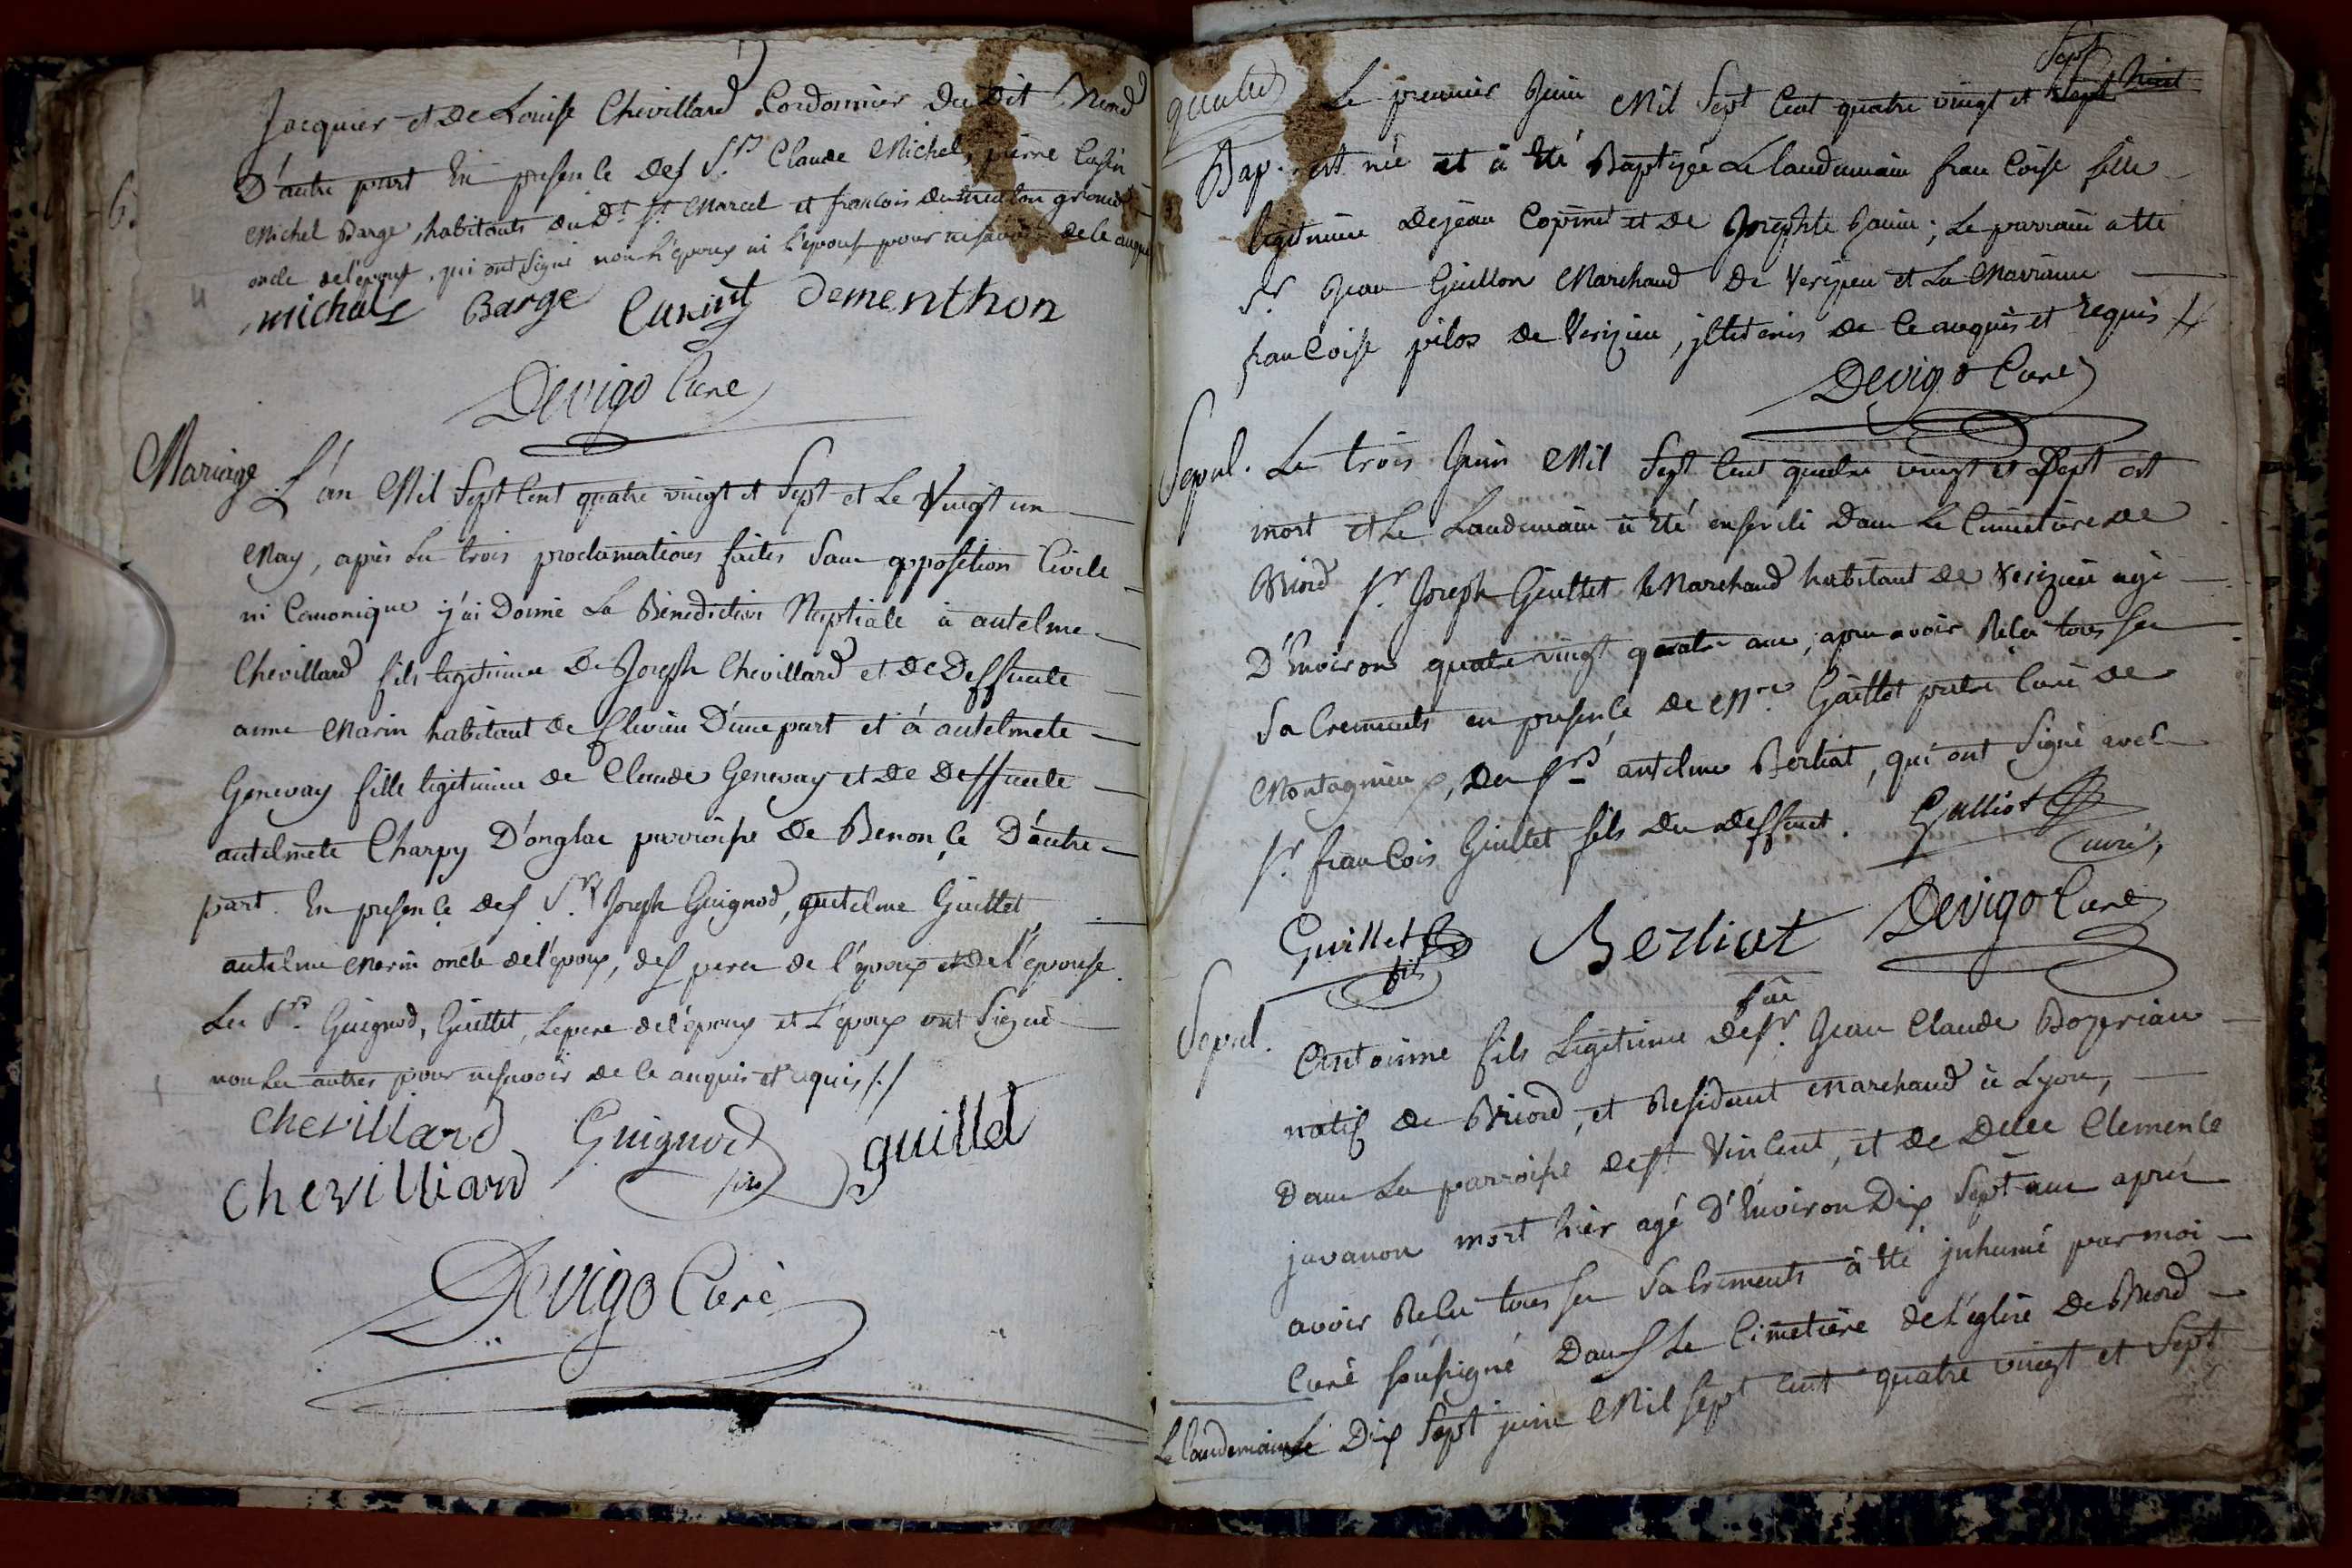 Jacquier et de Louise Chevillard Cordonnier Du Dit Briord
D'autre part En presence des Srs Claude Michel, pierre Cusin
Michel Barge, habitants du Dt St Marcel et francois dementhon grand
oncle de l'epouse, qui ont signé non l'epoux ni l'epouse pour ne savoir de ce enquis
michal Barge Cusin Dementhon
Devigo Curé
Mariage
L'an Mil Sept Cent quatre vingt et Sept et Le Vingt un
May, après les trois proclamations faites Sans opposition Civile
ni Canonique j'ai Donné La Bénédiction Nuptiale à antelme
Chevillard fils legitime De Joseph Chevillard et De Deffunte
anne Marin habitant de Flevieu D'une part et à antelmete
Genevay fille legitime de Claude Genevay et De Deffunte
antelmete Charpy D'onglas parroisse De Benonce D'autre
part. En presence des Srs Joseph Guignod, antelme Guillet
antelme Marin oncle de l'epoux, des peres de l'époux et de l'épouse.
Les Srs Guignod, Guillet, Le pere de l'époux et L'epoux ont Signé
non les autres pour ne savoir de ce enquis et requis //
chevillard Guignod guillet
chevilliard
Devigo Curé
Le premier Juin Mil Sept Cent quatre vingt et Sept
Bap. est née et à été Baptizée Le landemain francoise fille
legitime De jean Copinet et de Josephte Janin; Le parrain a été
Sr Jean Guillon Marchand De Verizieu et La Marraine
francoise pilos de Verizieu, illeteres de ce enquis et requis //
Devigo Curé
Sepul. Le trois Juin Mil Sept Cent quatre vingt et Sept est
mort et Le Landemain à été enseveli Dans Le Cimetiere De
Briord Sr Joseph Guillet Marchand habitant de Verizieu agé
D'Environ quatre vingt quatre ans, apres avoir Recu tous ses
Sacrements en presence de Mre Galliot pretre Curé de
Montagnieu, des Srs antelme Berliat, qui ont Signé avec
Sr francois Guillet fils Du Deffunt. Galliot
Curé
Guillet fils Berliat Devigo Curé
Sepul.
Antoinne fils Legitime De feu Sr Jean Claude Bozerian
natif de Briord, et Residant Marchand à Lyon,
Dans La parroisse de St Vincent, et de Delle Clemence
javanon mort hier agé D'Environ Dix Sept ans après
avoir Recu tous ses Sacrements à été inhumé par moi
Curé soussigné Dans Le Cimetiere de L'eglise De Briord
Le landemain Dix Sept juin Mil Sept Cent quatre vingt et Sept